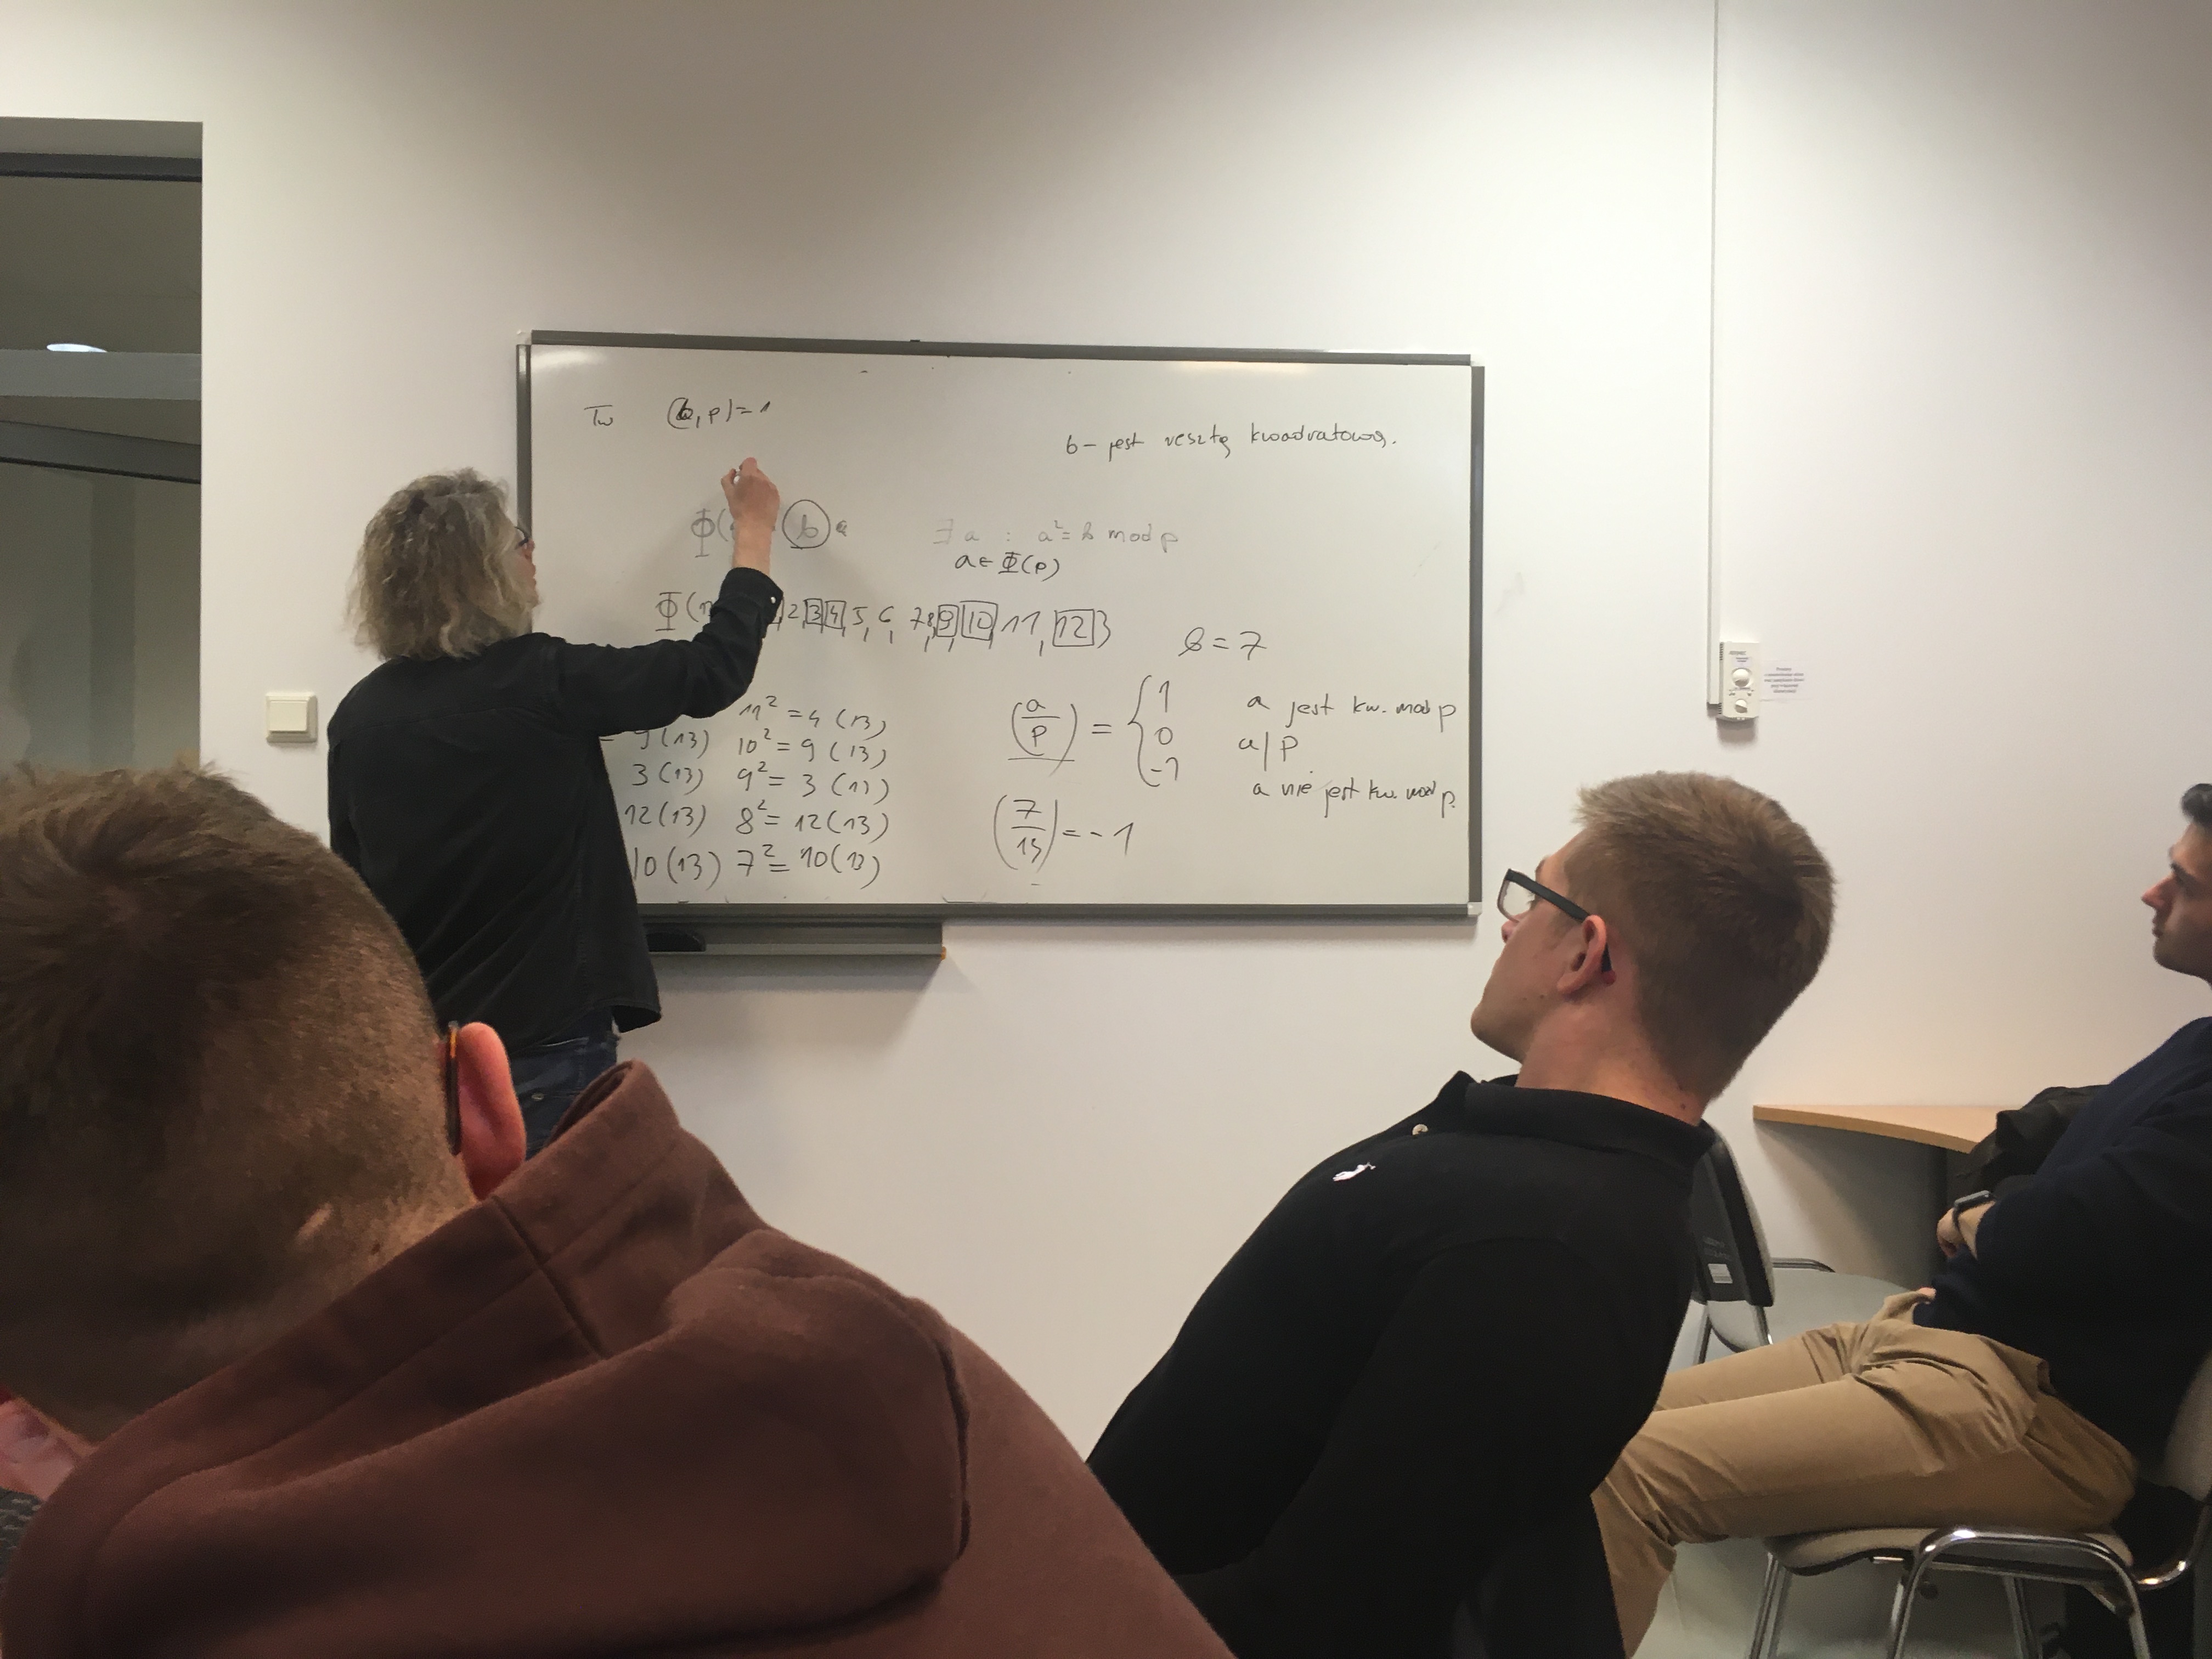 Tw (b, p) = 1
b – jest resztą kwadratową.
Φ( b a
∃ a : a² = b mod p
a ∈ Φ(p)
Φ(1 2, 3, 4, 5, 6, 7, 8, 9, 10, 11, 12}
b = 7
11² = 4 (13)
= 9 (13) 10² = 9 (13)
3 (13) 9² = 3 (13)
12 (13) 8² = 12 (13)
10 (13) 7² = 10 (13)
(a/p) = { 1 a jest kw. mod p
0 a | p
-1 a nie jest kw. mod p.
(7/13) = -1